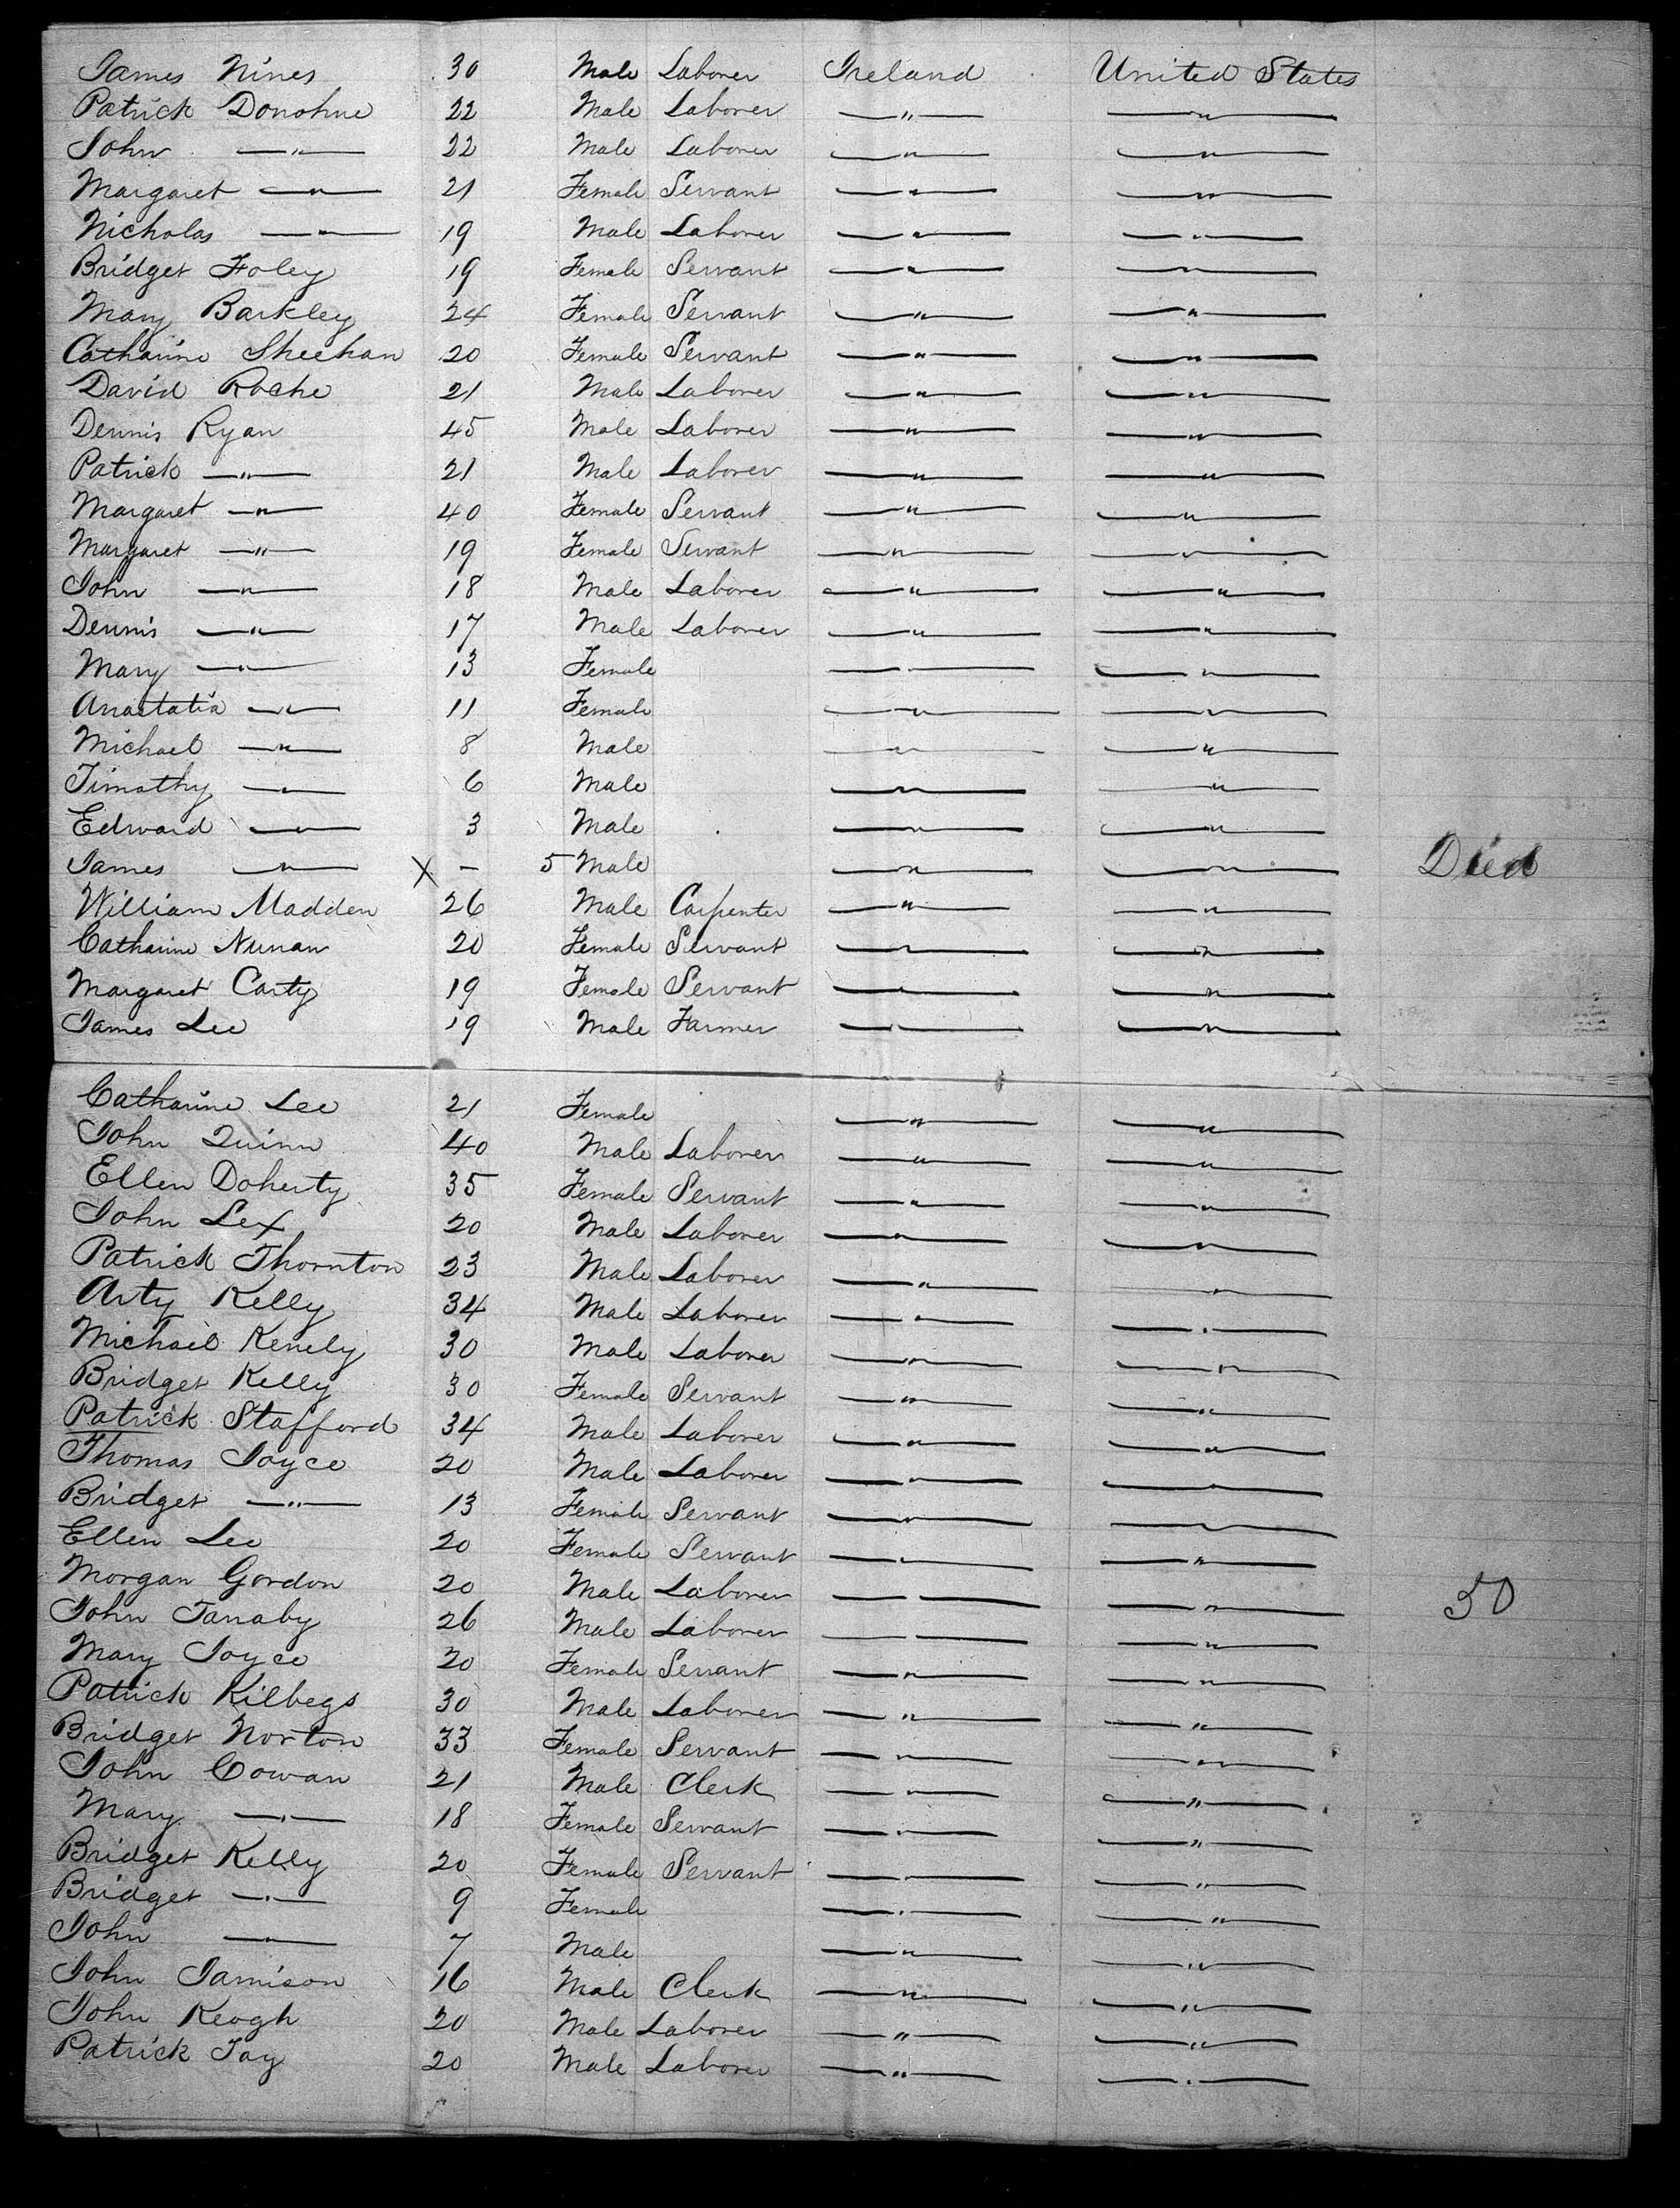 James Nines 30 Male Laborer Ireland United States
Patrick Donohue 22 Male Laborer —"— —"—
John —"— 22 Male Laborer —"— —"—
Margaret —"— 21 Female Servant —"— —"—
Nicholas —"— 19 Male Laborer —"— —"—
Bridget Foley 19 Female Servant —"— —"—
Mary Barkley 24 Female Servant —"— —"—
Catharine Sheehan 20 Female Servant —"— —"—
David Roche 21 Male Laborer —"— —"—
Dennis Ryan 45 Male Laborer —"— —"—
Patrick —"— 21 Male Laborer —"— —"—
Margaret —"— 40 Female Servant —"— —"—
Margaret —"— 19 Female Servant —"— —"—
John —"— 18 Male Laborer —"— —"—
Dennis —"— 17 Male Laborer —"— —"—
Mary —"— 13 Female —"— —"—
Anastatia —"— 11 Female —"— —"—
Michael —"— 8 Male —"— —"—
Timothy —"— 6 Male —"— —"—
Edward —"— 3 Male —"— —"—
James —"— X - 5 Male —"— —"— Died
William Madden 26 Male Carpenter —"— —"—
Catharine Nunan 20 Female Servant —"— —"—
Margaret Carty 19 Female Servant —"— —"—
James Lee 19 Male Farmer —"— —"—
Catharine Lee 21 Female —"— —"—
John Quinn 40 Male Laborer —"— —"—
Ellen Doherty 35 Female Servant —"— —"—
John Lex 20 Male Laborer —"— —"—
Patrick Thornton 23 Male Laborer —"— —"—
Arty Kelly 34 Male Laborer —"— —"—
Michael Kenely 30 Male Laborer —"— —"—
Bridget Kelly 30 Female Servant —"— —"—
Patrick Stafford 34 Male Laborer —"— —"—
Thomas Joyce 20 Male Laborer —"— —"—
Bridget —"— 13 Female Servant —"— —"—
Ellen Lee 20 Female Servant —"— —"—
Morgan Gordon 20 Male Laborer —"— —"— 50
John Tanaby 26 Male Laborer —"— —"—
Mary Joyce 20 Female Servant —"— —"—
Patrick Kilbegs 30 Male Laborer —"— —"—
Bridget Norton 33 Female Servant —"— —"—
John Cowan 21 Male Clerk —"— —"—
Mary —"— 18 Female Servant —"— —"—
Bridget Kelly 20 Female Servant —"— —"—
Bridget —"— 9 Female —"— —"—
John —"— 7 Male —"— —"—
John Jamison 16 Male Clerk —"— —"—
John Keogh 20 Male Laborer —"— —"—
Patrick Tay 20 Male Laborer —"— —"—